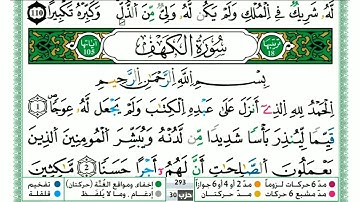 لَّهُۥ شَرِيكٌ فِي ٱلْمُلْكِ وَلَمْ يَكُن لَّهُۥ وَلِيٌّ مِّنَ ٱلذُّلِّ وَكَبِّرْهُ تَكْبِيرًا 110
ترتيبها 18 سُورَةُ الكَهْفِ آياتها 105
بِسْمِ ٱللَّهِ ٱلرَّحْمَٰنِ ٱلرَّحِيمِ
ٱلْحَمْدُ لِلَّهِ ٱلَّذِي أَنزَلَ عَلَىٰ عَبْدِهِ ٱلْكِتَٰبَ وَلَمْ يَجْعَل لَّهُۥ عِوَجًا 1
قَيِّمًا لِّيُنذِرَ بَأْسًا شَدِيدًا مِّن لَّدُنْهُ وَيُبَشِّرَ ٱلْمُومِنِينَ ٱلَّذِينَ
يَعْمَلُونَ ٱلصَّٰلِحَٰتِ أَنَّ لَهُمْ أَجْرًا حَسَنًا 2 مَّٰكِثِينَ
مدّ 6 حركات لزوماً مدّ 2 أو 4 أو 6 جوازاً إخفاء، ومواقع الغُنَّة (حركتان) تفخيم
مدّ مشبع 6 حركات مدّ حركتان 293 حزب 30 إدغام، وما لا يُلفظ قلقلة